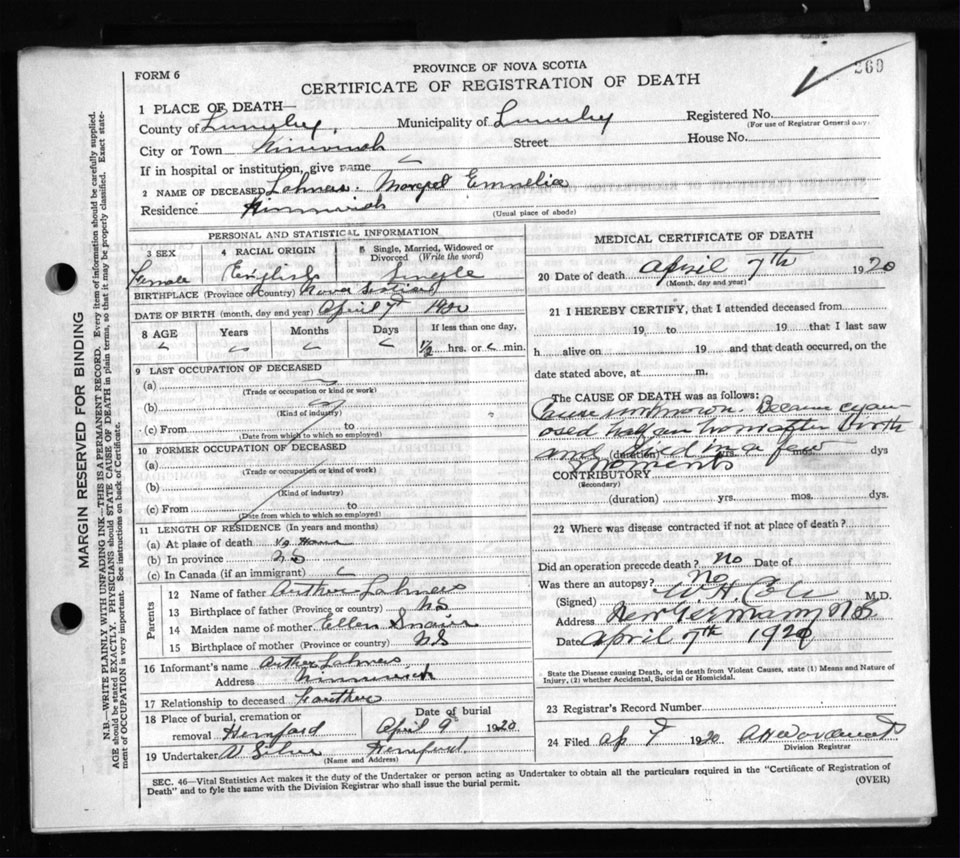 FORM 6
PROVINCE OF NOVA SCOTIA
CERTIFICATE OF REGISTRATION OF DEATH
269
1 PLACE OF DEATH—
County of Municipality of Registered No.
(For use of Registrar General only.)
City or Town Street House No.
If in hospital or institution, give name
2 NAME OF DECEASED Lohnes. Emnelia
Residence
(Usual place of abode)
PERSONAL AND STATISTICAL INFORMATION
3 SEX 4 RACIAL ORIGIN 5 Single, Married, Widowed or Divorced (Write the word)
Female English Single
BIRTHPLACE (Province or Country) Nova Scotia
DATE OF BIRTH (month, day and year) April 7
8 AGE Years Months Days If less than one day,
1/2 hrs. or min.
9 LAST OCCUPATION OF DECEASED
(a)
(Trade or occupation or kind or work)
(b)
(Kind of industry)
(c) From to
(Date from which to which so employed)
10 FORMER OCCUPATION OF DECEASED
(a)
(Trade or occupation or kind of work)
(b)
(Kind of industry)
(c) From to
(Date from which so which so employed)
11 LENGTH OF RESIDENCE (In years and months)
(a) At place of death 1/2 Hour
(b) In province NS
(c) In Canada (if an immigrant)
Parents
12 Name of father Arthur Lohnes
13 Birthplace of father (Province or country) NS
14 Maiden name of mother Ellen
15 Birthplace of mother (Province or country) NS
16 Informant's name Arthur Lohnes
Address
17 Relationship to deceased
18 Place of burial, cremation or removal Hemford Date of burial April 9 1920
19 Undertaker Hemford.
(Name and Address)
MEDICAL CERTIFICATE OF DEATH
20 Date of death April 7th 1920
(Month, day and year)
21 I HEREBY CERTIFY, that I attended deceased from
19 to 19 that I last saw
h alive on 19 and that death occurred, on the
date stated above, at m.
The CAUSE OF DEATH was as follows:
Cause unknown. Became cyan
osed half an hour after birth
and died in a few
(duration) yrs. dys
moments
CONTRIBUTORY
(Secondary)
(duration) yrs. mos. dys.
22 Where was disease contracted if not at place of death?
Did an operation precede death? No Date of
Was there an autopsy? No
(Signed) W.H. Cole M.D.
Address New Germany N.S.
Date April 7th 1920
State the Disease causing Death, or in death from Violent Causes, state (1) Means and Nature of
Injury, (2) whether Accidental, Suicidal or Homicidal.
23 Registrar's Record Number
24 Filed 1920
Division Registrar
SEC. 46—Vital Statistics Act makes it the duty of the Undertaker or person acting as Undertaker to obtain all the particulars required in the "Certificate of Registration of
Death" and to fyle the same with the Division Registrar who shall issue the burial permit.
(OVER)
MARGIN RESERVED FOR BINDING
N.B.—WRITE PLAINLY WITH UNFADING INK—THIS IS A PERMANENT RECORD. Every item of information should be carefully supplied.
AGE should be stated EXACTLY. PHYSICIANS should STATE CAUSE OF DEATH in plain terms, so that it may be properly classified. Exact state-
ment of OCCUPATION is very important. See instructions on back of Certificate.